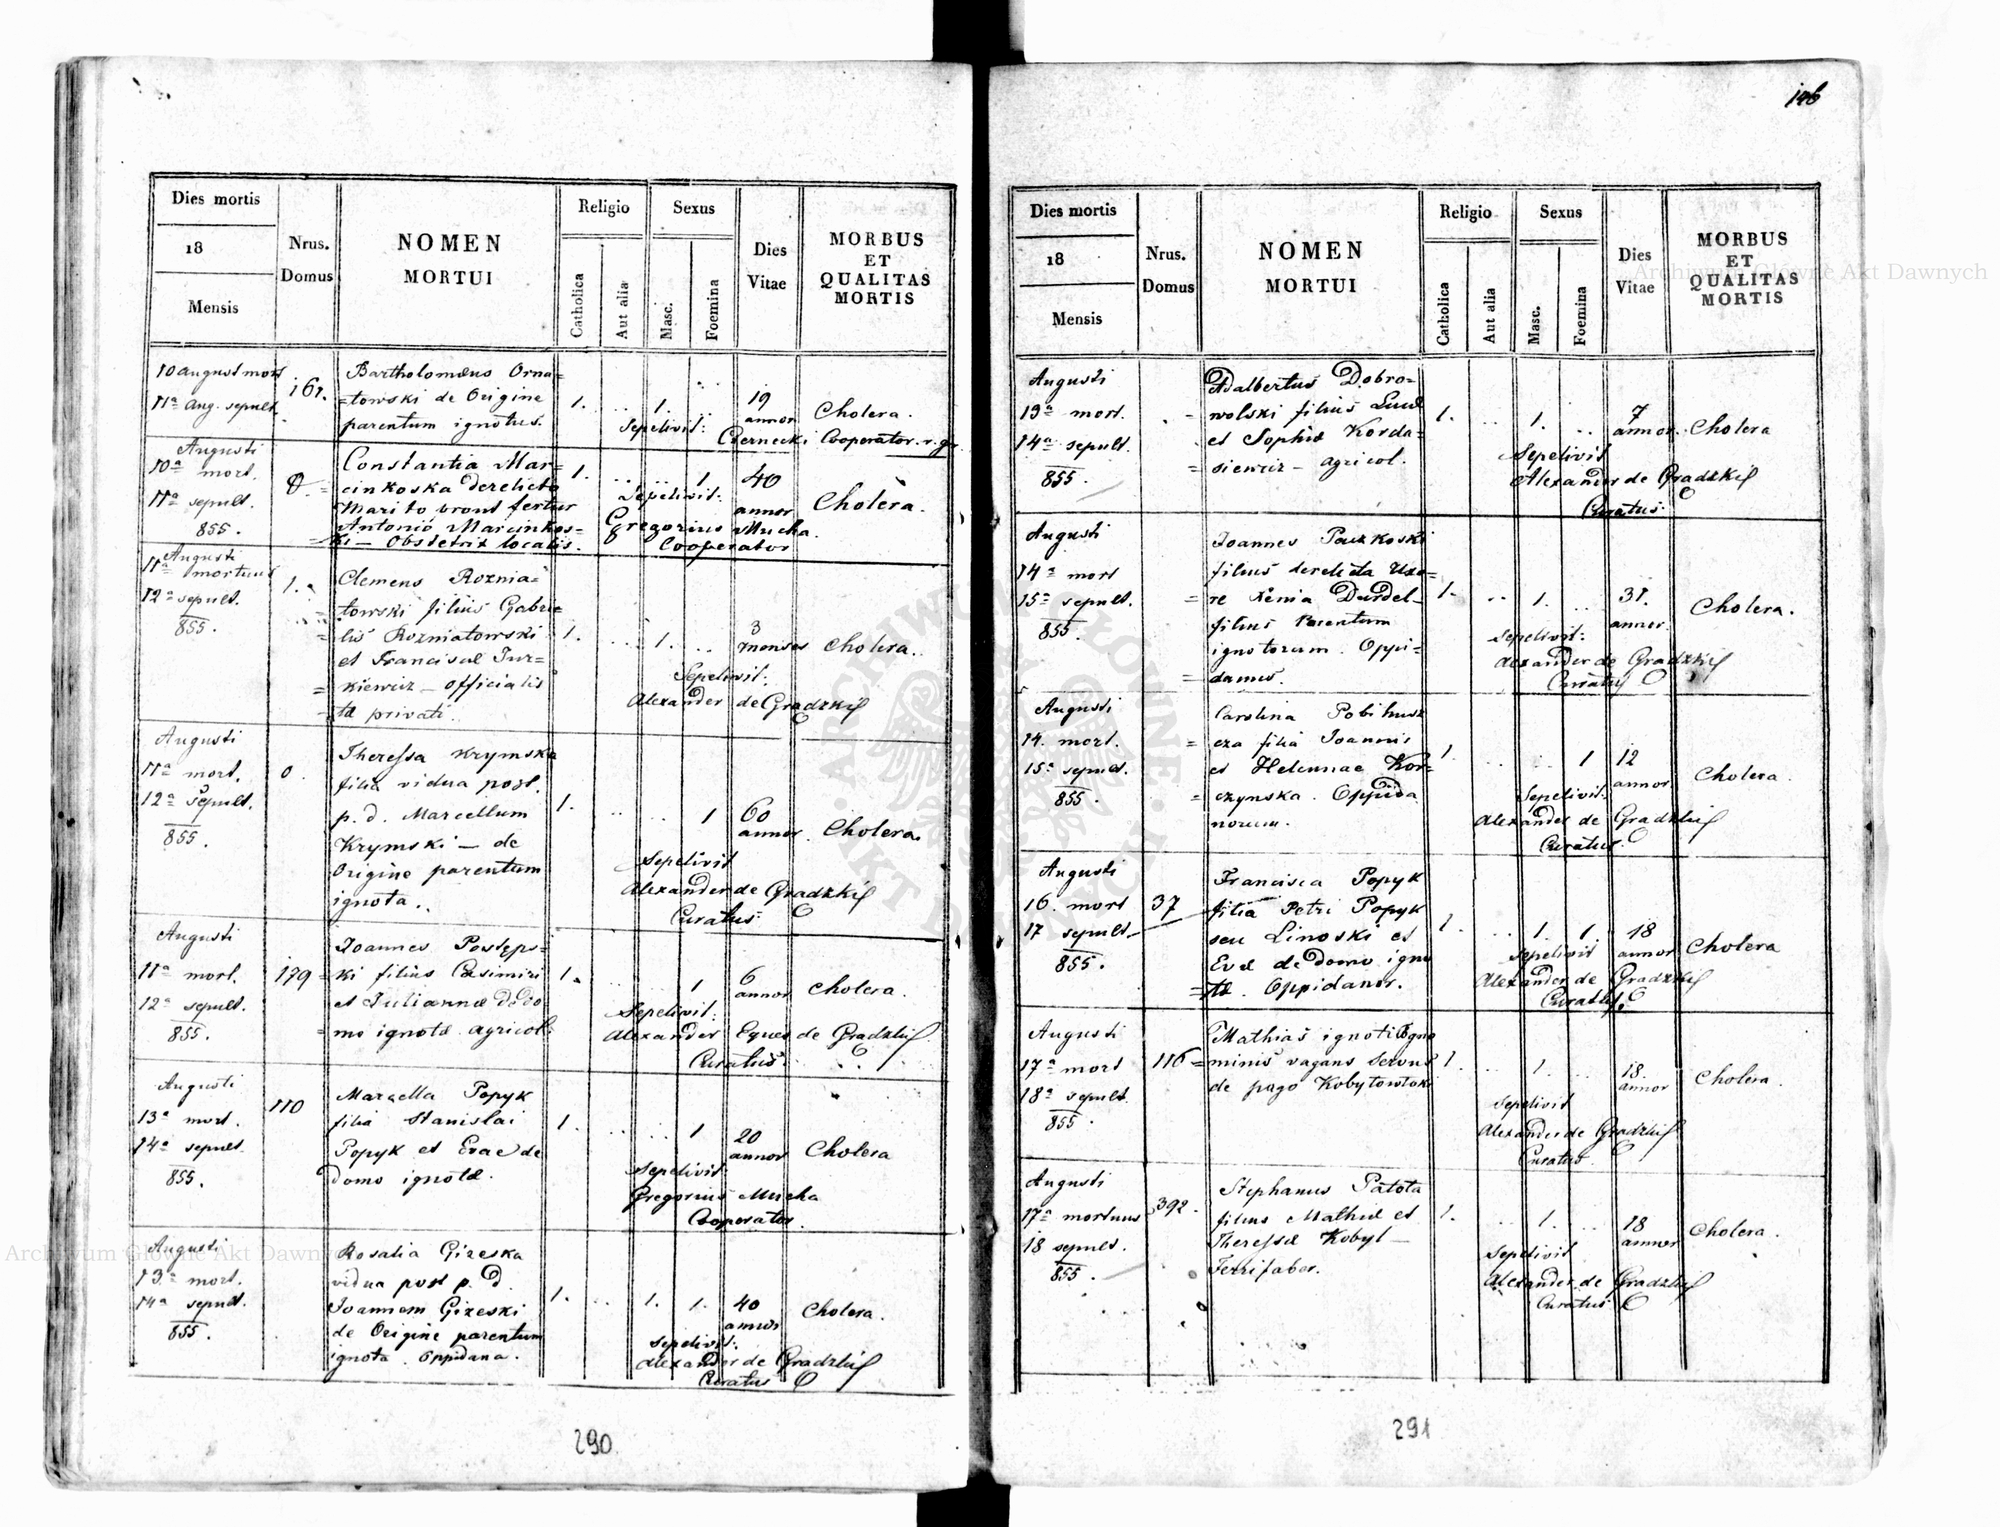 146
Dies mortis
18
Mensis
Nrus.
Domus
NOMEN
MORTUI
Religio
Catholica
Aut alia
Sexus
Masc.
Foemina
Dies
Vitae
MORBUS
ET
QUALITAS
MORTIS
10 august mort
11ª Aug. sepult.
161.
Bartholomæus Orna=
=towski de Origine
parentum ignotus.
1. .. 1. ..
19
annor
Cholera.
Sepelivit: Czernecki Cooperator
Augusti
10ª mort.
11ª sepult.
855.
Constantia Mar=
cinkoska derelicto
Marito uront fertur
Antonio Marcinkos=
ki — Obstetrix localis.
1. .. .. 1
40
annor
Cholera.
Sepelivit:
Gregorius Mucha
Cooperator
Augusti
11ª mortuus
12ª sepult.
855.
1.
Clemens Roznia=
towski filius Gabrie
=lis Rozniatowski
et Franciscæ Jur=
=kiewicz — officialis
=tæ privati.
1. .. 1. ..
3
menses
Cholera.
Sepelivit:
Alexander de Gradzki
Augusti
11ª mort.
12ª sepult.
855.
0.
Theressa Krymska
filia vidua post.
p. d. Marcellum
Krymski — de
Origine parentum
ignota.
1. .. .. 1
60
annor.
Cholera.
Sepelivit
Alexander de Gradzki
Curatus.
Augusti
11ª mort.
12ª sepult.
855.
179
Joannes Postęps=
ki filius Casimiri
et Juliannæ de do
=mo ignotæ agricol:
1. .. .. 1
6
annor
Cholera.
Sepelivit:
Alexander Eques de Gradzki
Curatus
Augusti
13ª mort.
14ª sepult.
855.
110
Marcella Popyk
filia Stanislai
Popyk et Evae de
domo ignotæ.
1. .. .. 1
20
annor
Cholera
Sepelivit
Gregorius Mucha
Cooperator.
Augusti
13ª mort.
14ª sepult.
855.
Rosalia Gizeska
vidua post p. d.
Joannem Gizeski
de Origine parentum
ignota. Oppidana.
1. .. 1. 1.
40
annor
Cholera.
Sepelivit:
Alexander de Gradzki
Curatus
290
Dies mortis
18
Mensis
Nrus.
Domus
NOMEN
MORTUI
Religio
Catholica
Aut alia
Sexus
Masc.
Foemina
Dies
Vitae
MORBUS
ET
QUALITAS
MORTIS
Augusti
13ª mort.
14ª sepult.
855.
Adalbertus Dobro=
wolski filius Lud
et Sophiæ Korda=
=siewicz — agricol.
1. .. 1. ..
7
annor.
Cholera
Sepelivit
Alexander de Gradzki
Curatus
Augusti
14ª mort
15ª sepult.
855.
Joannes Paczkoski
filius derelicta Uxo=
=re Xenia Durdel—
filius Parentum
ignotorum. Oppi=
=danus.
1. .. 1. ..
31.
annor.
Cholera.
Sepelivit:
Alexander de Gradzki
Curatus
Augusti
14. mort.
15ª sepult.
855.
Carolina Pobihusz
=cza filia Joannis
et Helennae Kor=
=czynska. Oppida
norum.
1. .. .. 1
12
annor.
Cholera.
Sepelivit.
Alexander de Gradzki
Curatus
Augusti
16. mort
17 sepult.
855.
37
Francisca Popyk
filia Petri Popyk
seu Linoski et
Evæ de domo igno
=tæ. Oppidanor.
1. .. 1. 1.
18
annor
Cholera
Sepelivit
Alexander de Gradzki
Curatus.
Augusti
17ª mort
18ª sepult.
855.
116
Mathias ignoti Cogno
=minis vagans servus
de pago
1. .. 1. ..
18.
annor
Cholera.
Sepelivit
Alexander de Gradzki
Curatus.
Augusti
17ª mortuus
18 sepult.
855.
392.
Stephanus Patota
filius Mathiæ et
Theressæ Kobyl—
Ferrifaber.
1. .. 1. ..
18
annor
Cholera.
Sepelivit
Alexander de Gradzki
Curatus
291
Archiwum Główne Akt Dawnych
Archiwum Główne Akt Dawnych
ARCHIWUM GŁÓWNE
AKT DAWNYCH